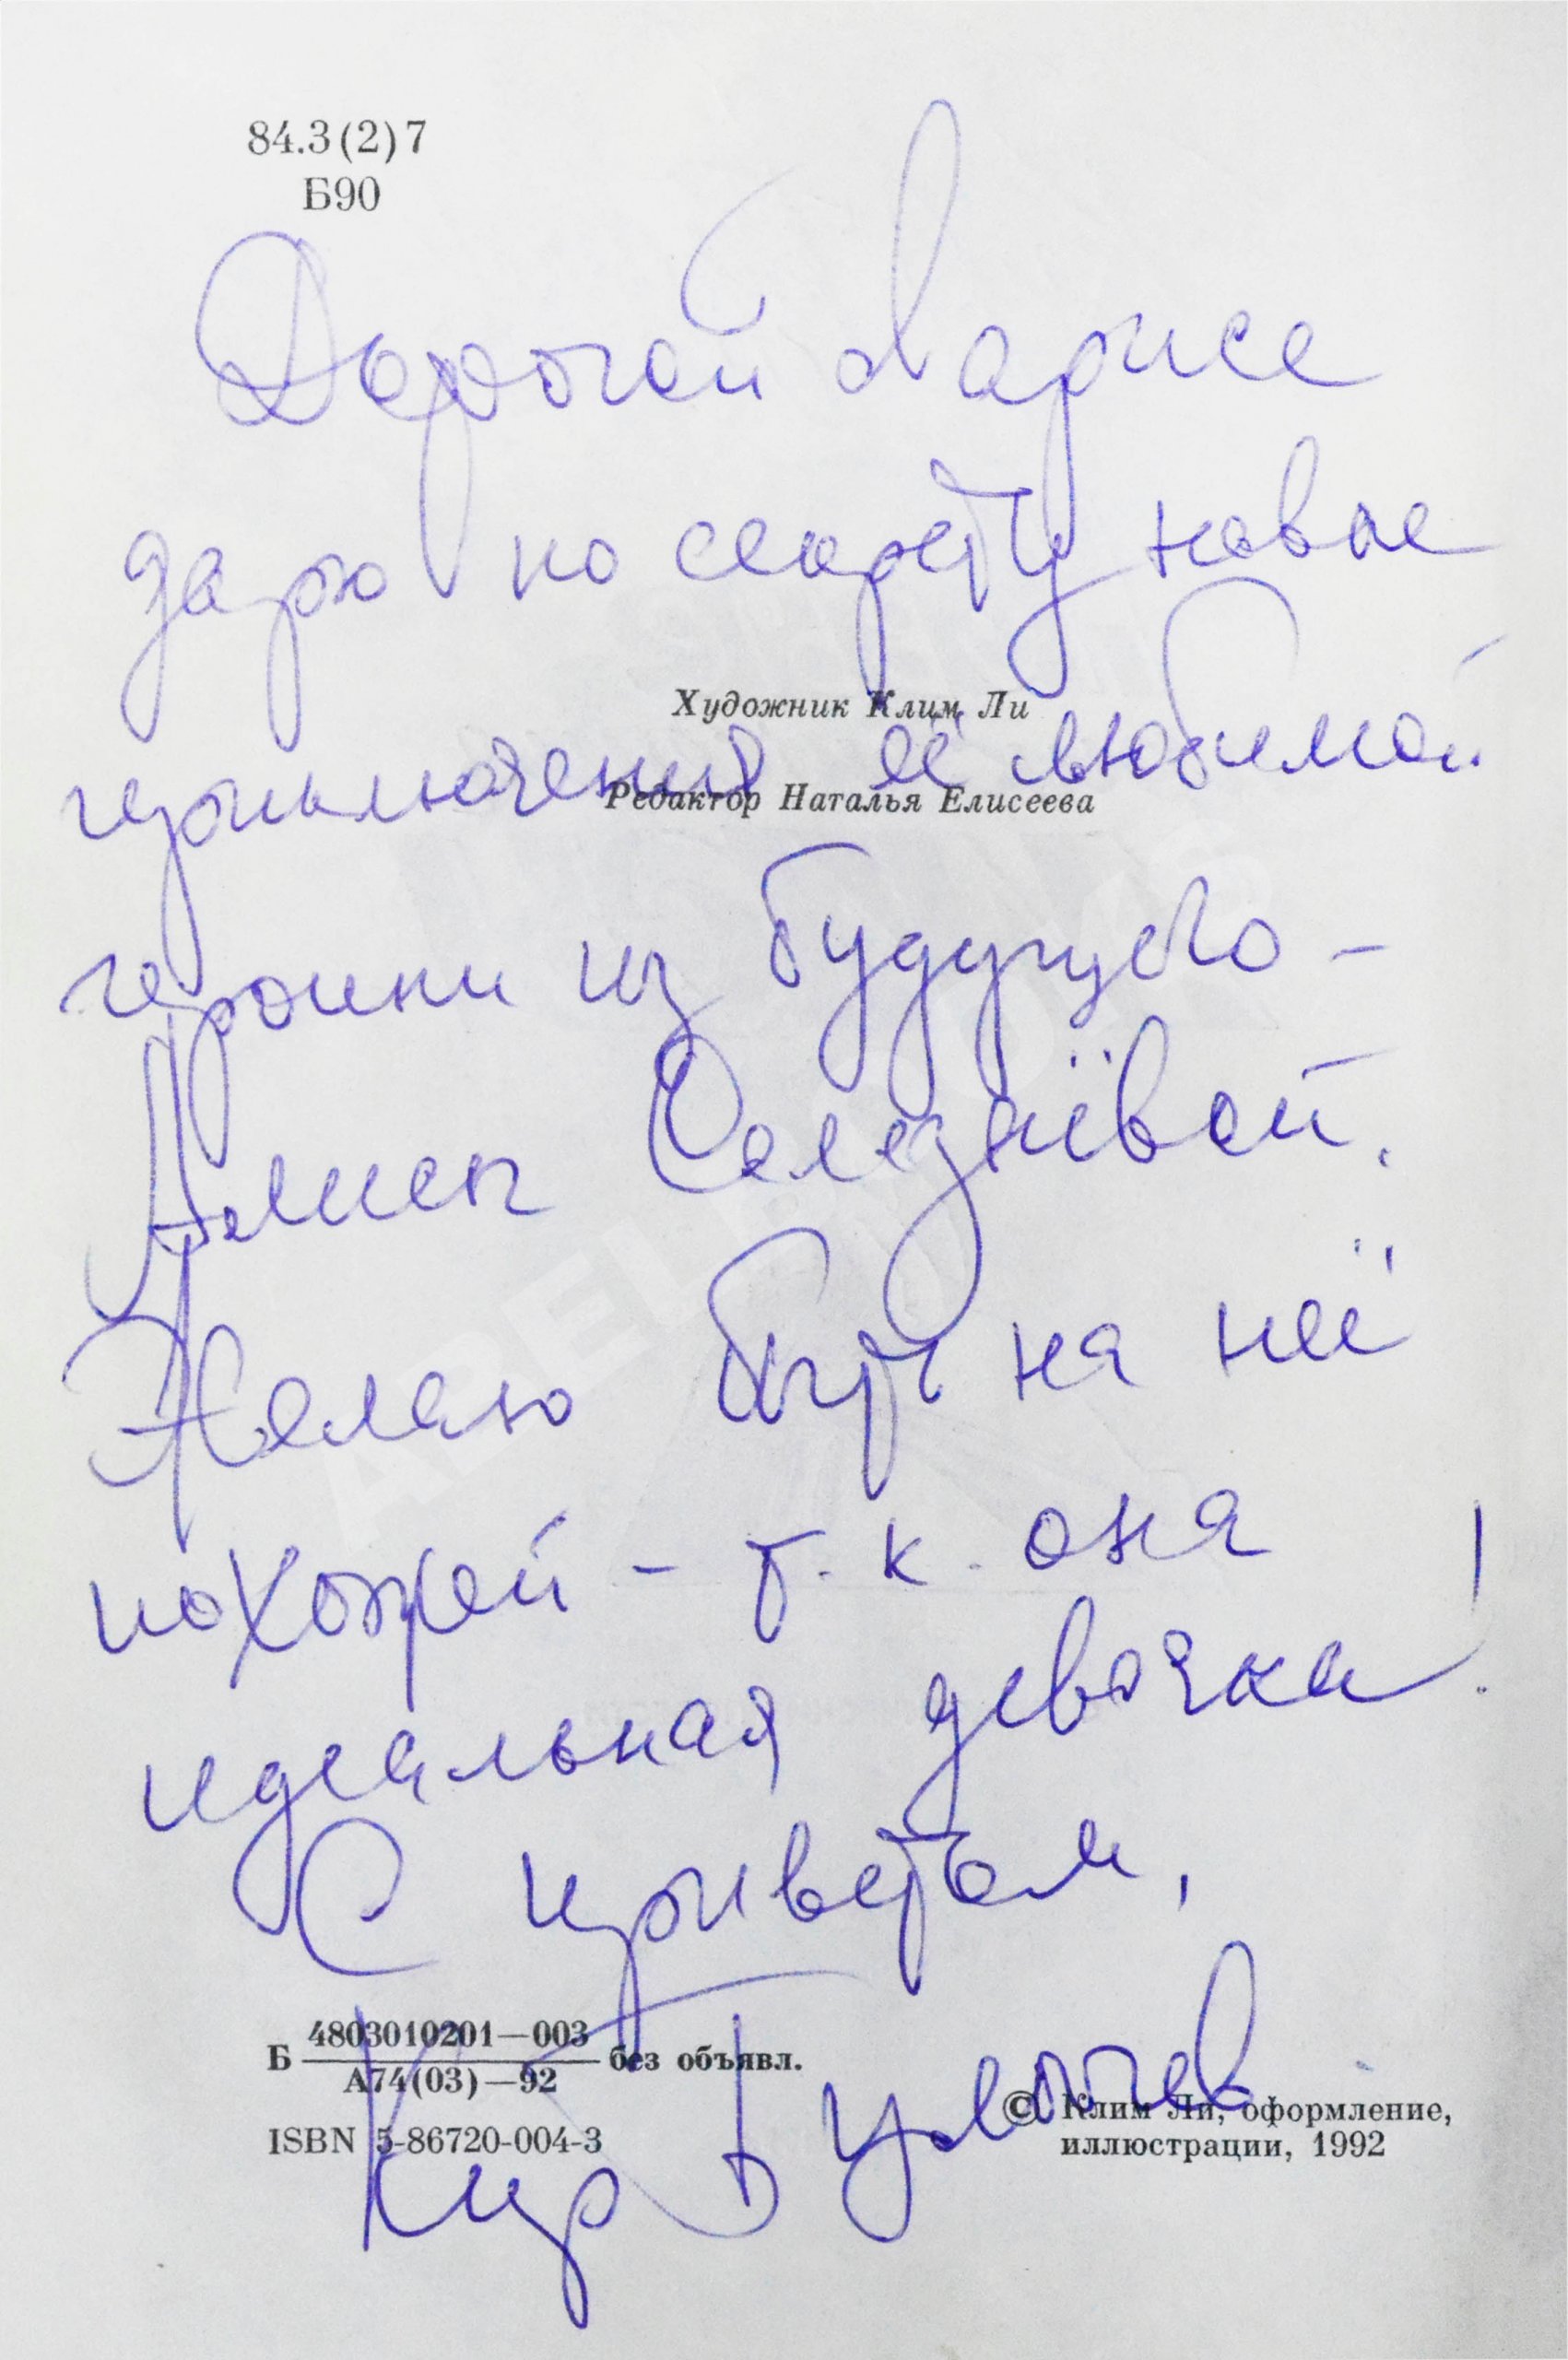 84.3(2)7
Б90
Дорогой Ларисе
дарю по секрету новые
Художник Клим Ли
приключения её любимой
Редактор Наталья Елисеева
героини из будущего –
Алисы Селезнёвой.
Желаю быть на неё
похожей – т.к. она
идеальная девочка!
С приветом,
Кир Булычев
Б 4803010201—003 без объявл.
А74(03)—92
© Клим Ли, оформление,
иллюстрации, 1992
ISBN 5-86720-004-3